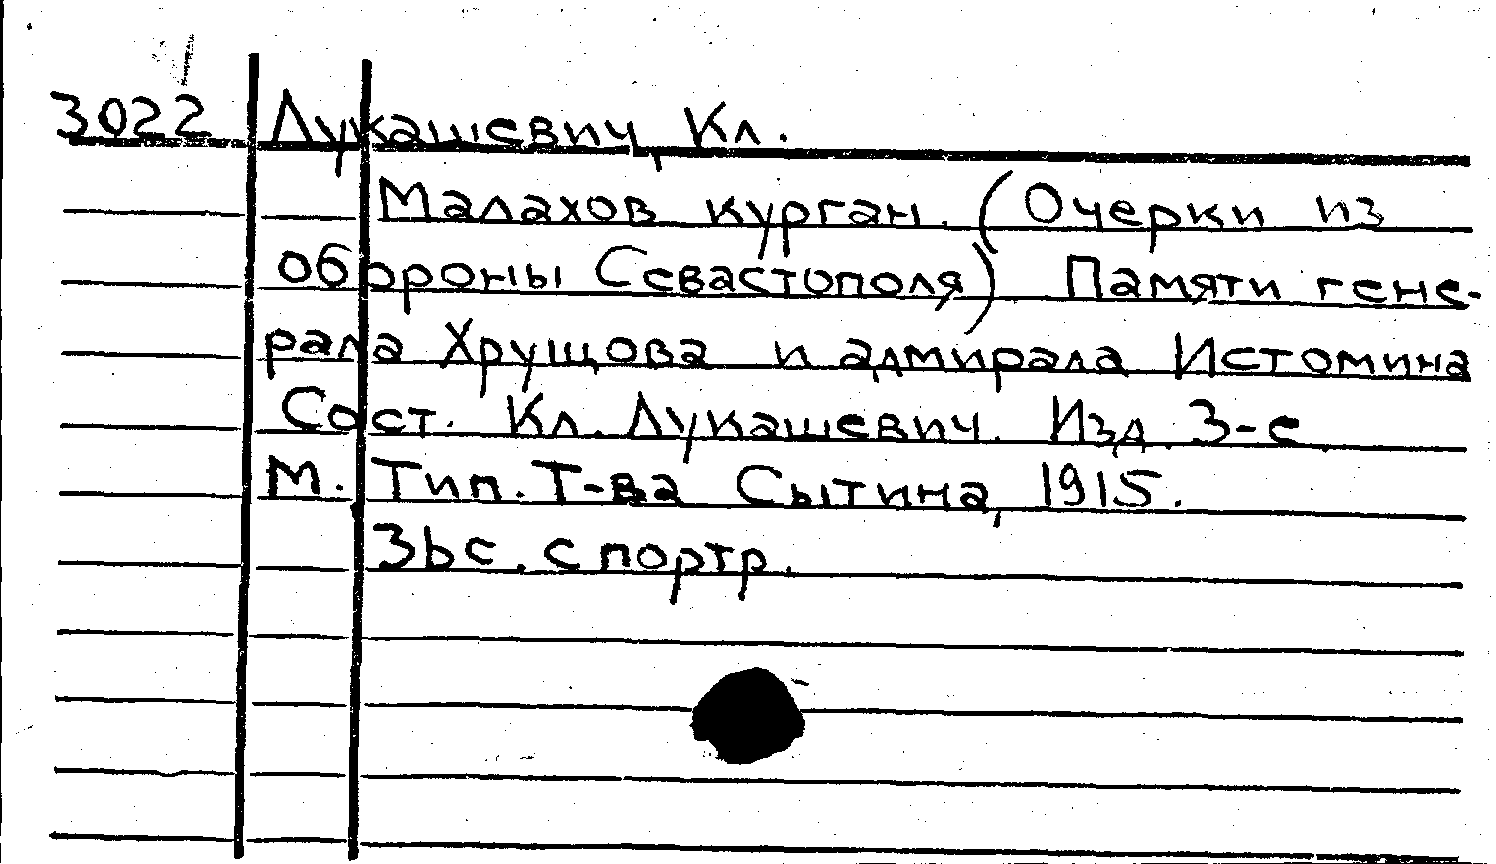 3022 Лукашевич, Кл.
Малахов курган. (Очерки из
обороны Севастополя) Памяти гене-
рала Хрущова и адмирала Истомина
Сост. Кл. Лукашевич. Изд. 3-е
М. Тип. Т-ва Сытина, 1915.
36с. с портр.